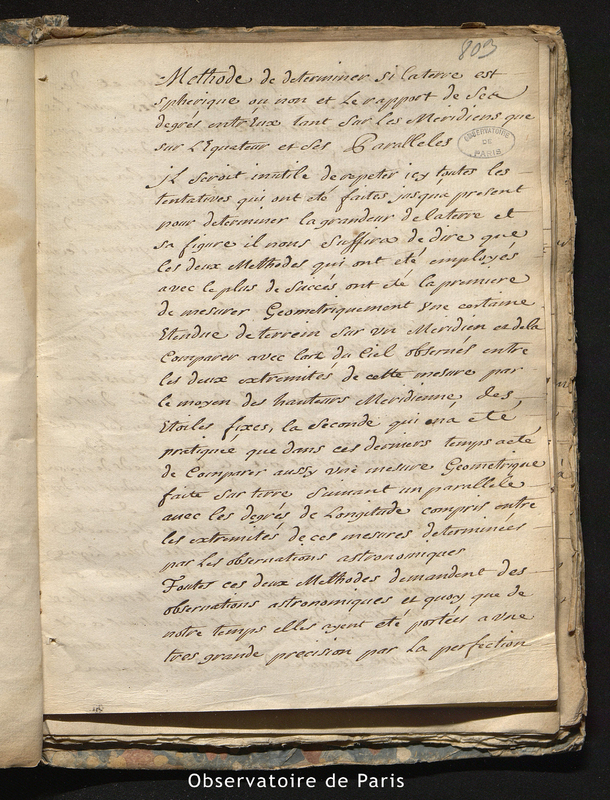 803
Methode de determiner si la terre est
spherique ou non et Le rapport de Ses
degrés entrEux tant Sur Les Meridiens que
sur L'Equateur et Ses Paralleles
OBSERVATOIRE
DE
PARIS
jL seroit inutile de repeter icy toutes les
tentatives qui ont eté faites jusqua present
pour determiner la grandeur de la terre et
sa figure il nous Suffira de dire que
les deux Methodes qui ont eté employés
avec le plus de Succés ont été la premiere
de mesurer Geometriquement Vne certaine
Etendue de terrein Sur vn Meridien et de la
Comparer avec l'arc du Ciel observés entre
les deux extremités de cette mesure par
le moyen des hauteurs Meridienne des
Etoiles fixes, la Seconde qui na eté
pratiquée que dans ces derniers temps a eté
de Comparer aussy vne mesure Geometrique
faite Sur terre Suivant un parallele
avec les degrés de Longitude compris entre
les extremités de ces mesures determinées
par Les observations astronomiques
Toutes ces deux Methodes demandent des
observations astronomiques et quoy que de
notre temps elles ayent eté portées a vne
tres grande precision par La perfection
Observatoire de Paris